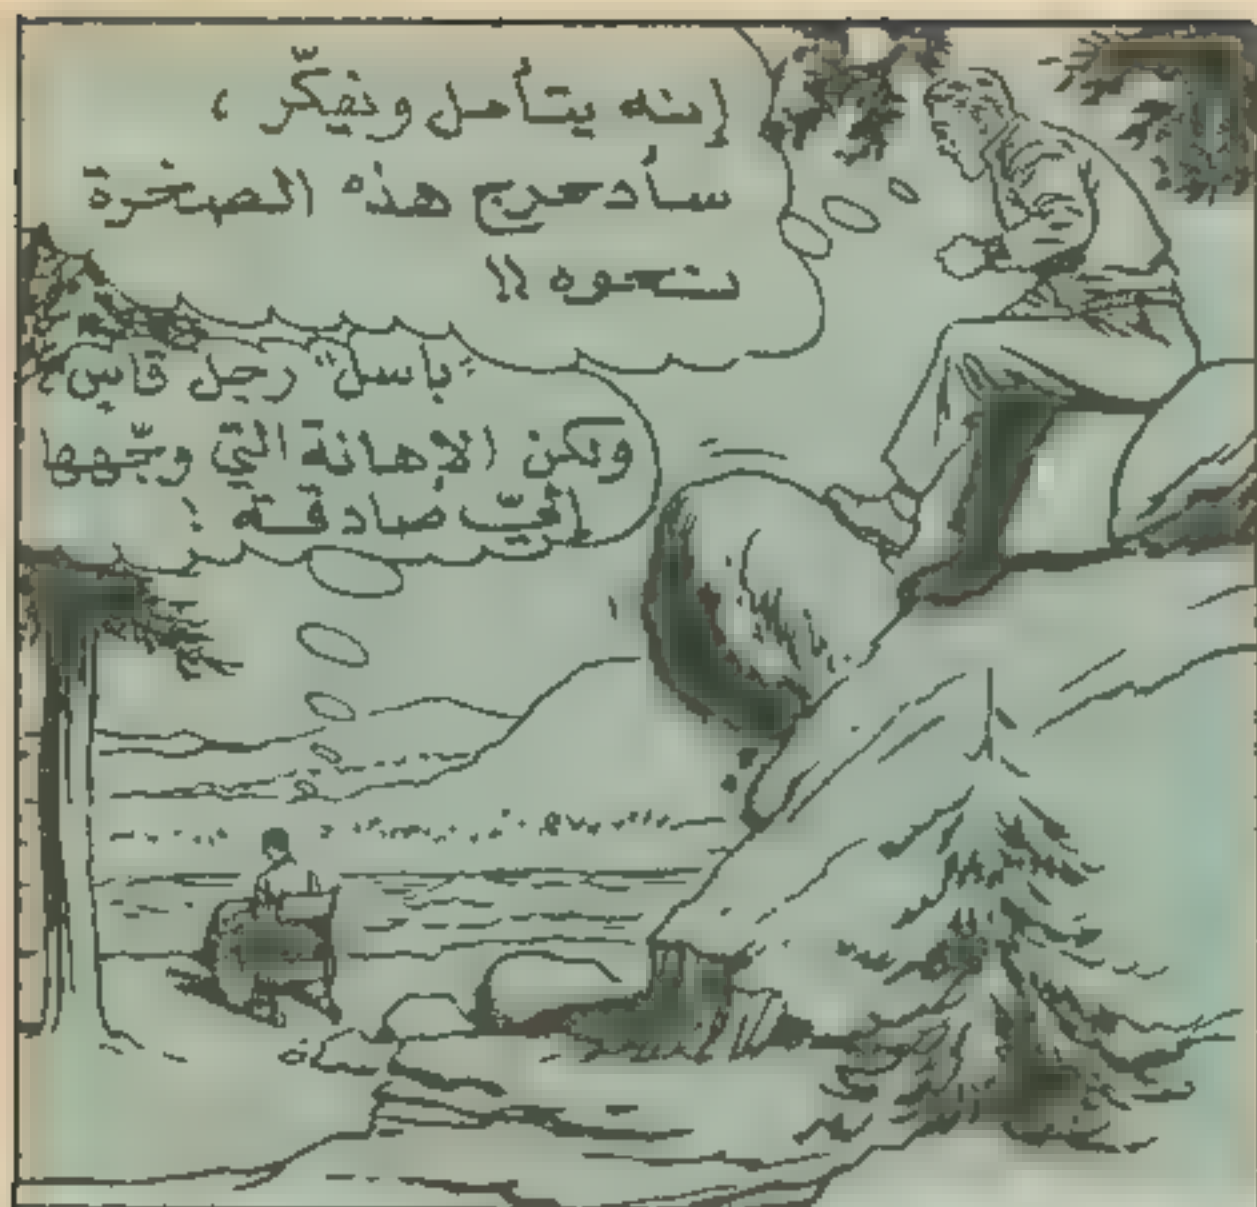 إنه يتأمل ويفكّر ،
سأدحرج هذه الصخرة
نحوه !!
"باسل" رجل قاسٍ ،
ولكن الإهانة التي وجّهها
إليّ صادقة !